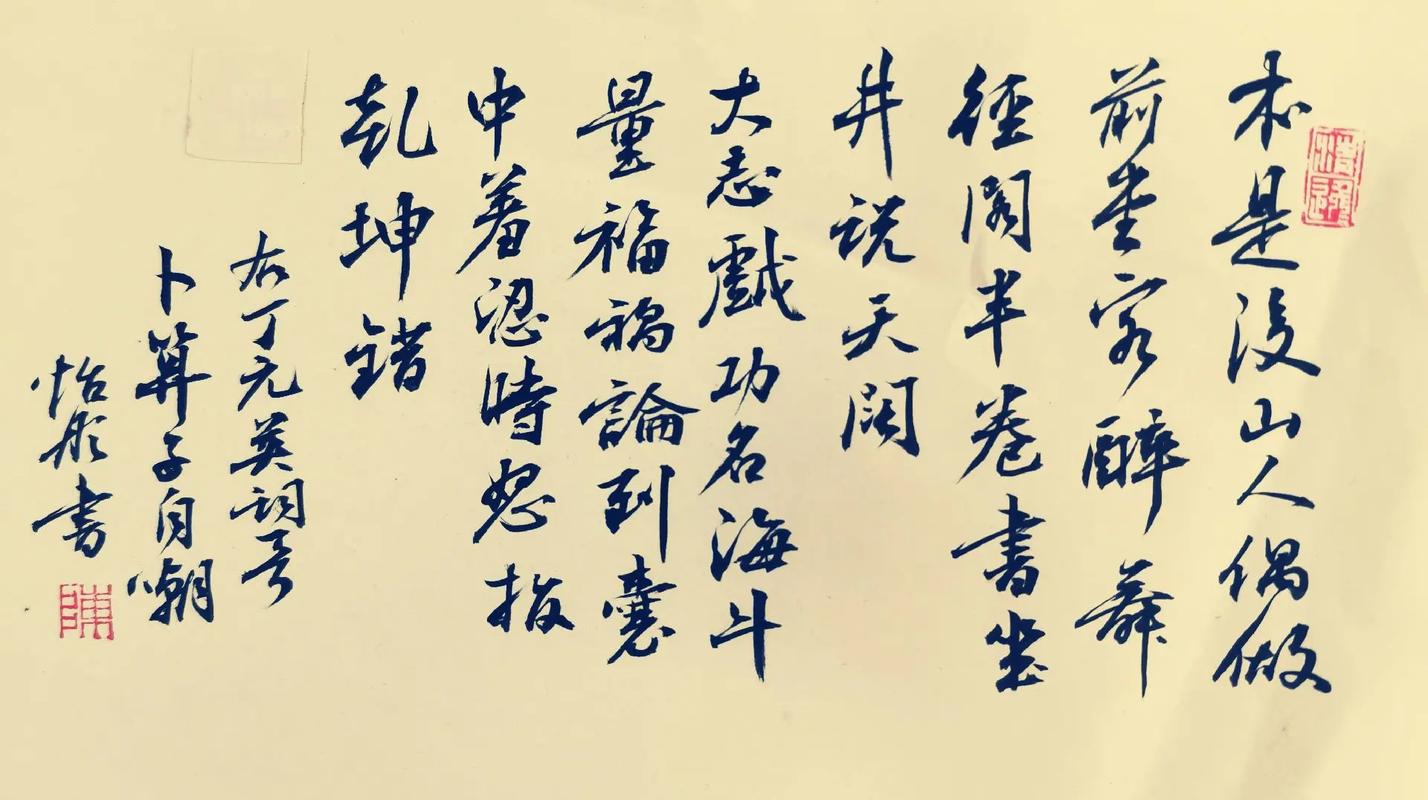 本是後山人偶做
前堂客醉舞
經閣半卷書坐
井説天闊
大志戲功名海斗
量福禍論到囊
中羞澀時怒指
乾坤錯
右丁元英詞
卜算子自嘲
怡彤書
陳